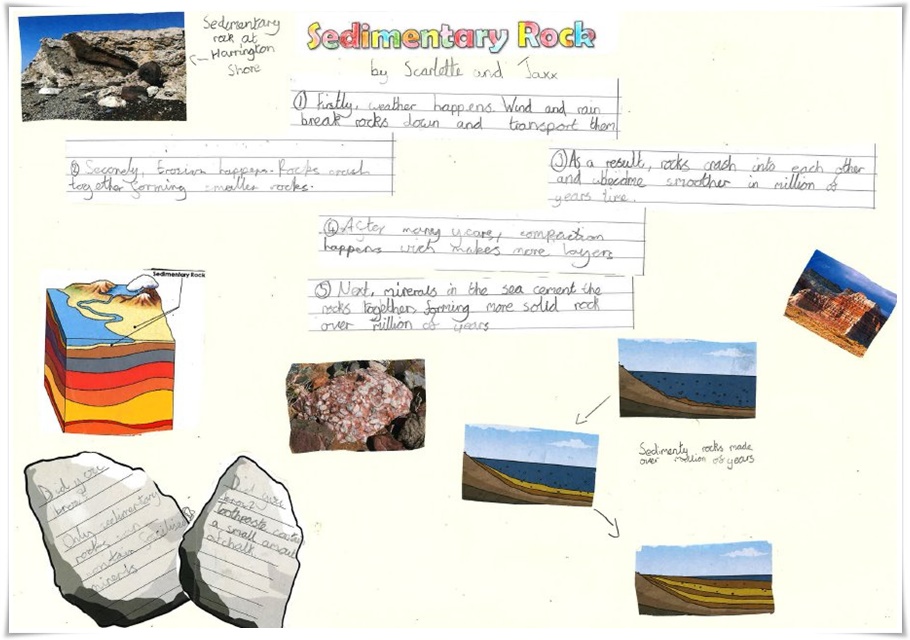 Sedimentary
rock at
Harrington
Shore
Sedimentary Rock
by Scarlette and Jaxx
① Firstly, weather happens. Wind and rain
break rocks down and transport them
② Seconely, Erosion happens. Rocks crash
together forming smaller rocks.
③ As a result, rocks crash into each other
and become smoother in million of
years time.
④ After many years, compaction
happens wich makes more layers
⑤ Next, minerals in the sea cement the
rocks together forming more solid rock
over million of years
Sedimentary Rock
Sedimenty rocks made
over million of years
Did you
know?
Only sedimentary
rocks can
contain
minerals
Did you
know?
toothpaste
a small amount
of chalk